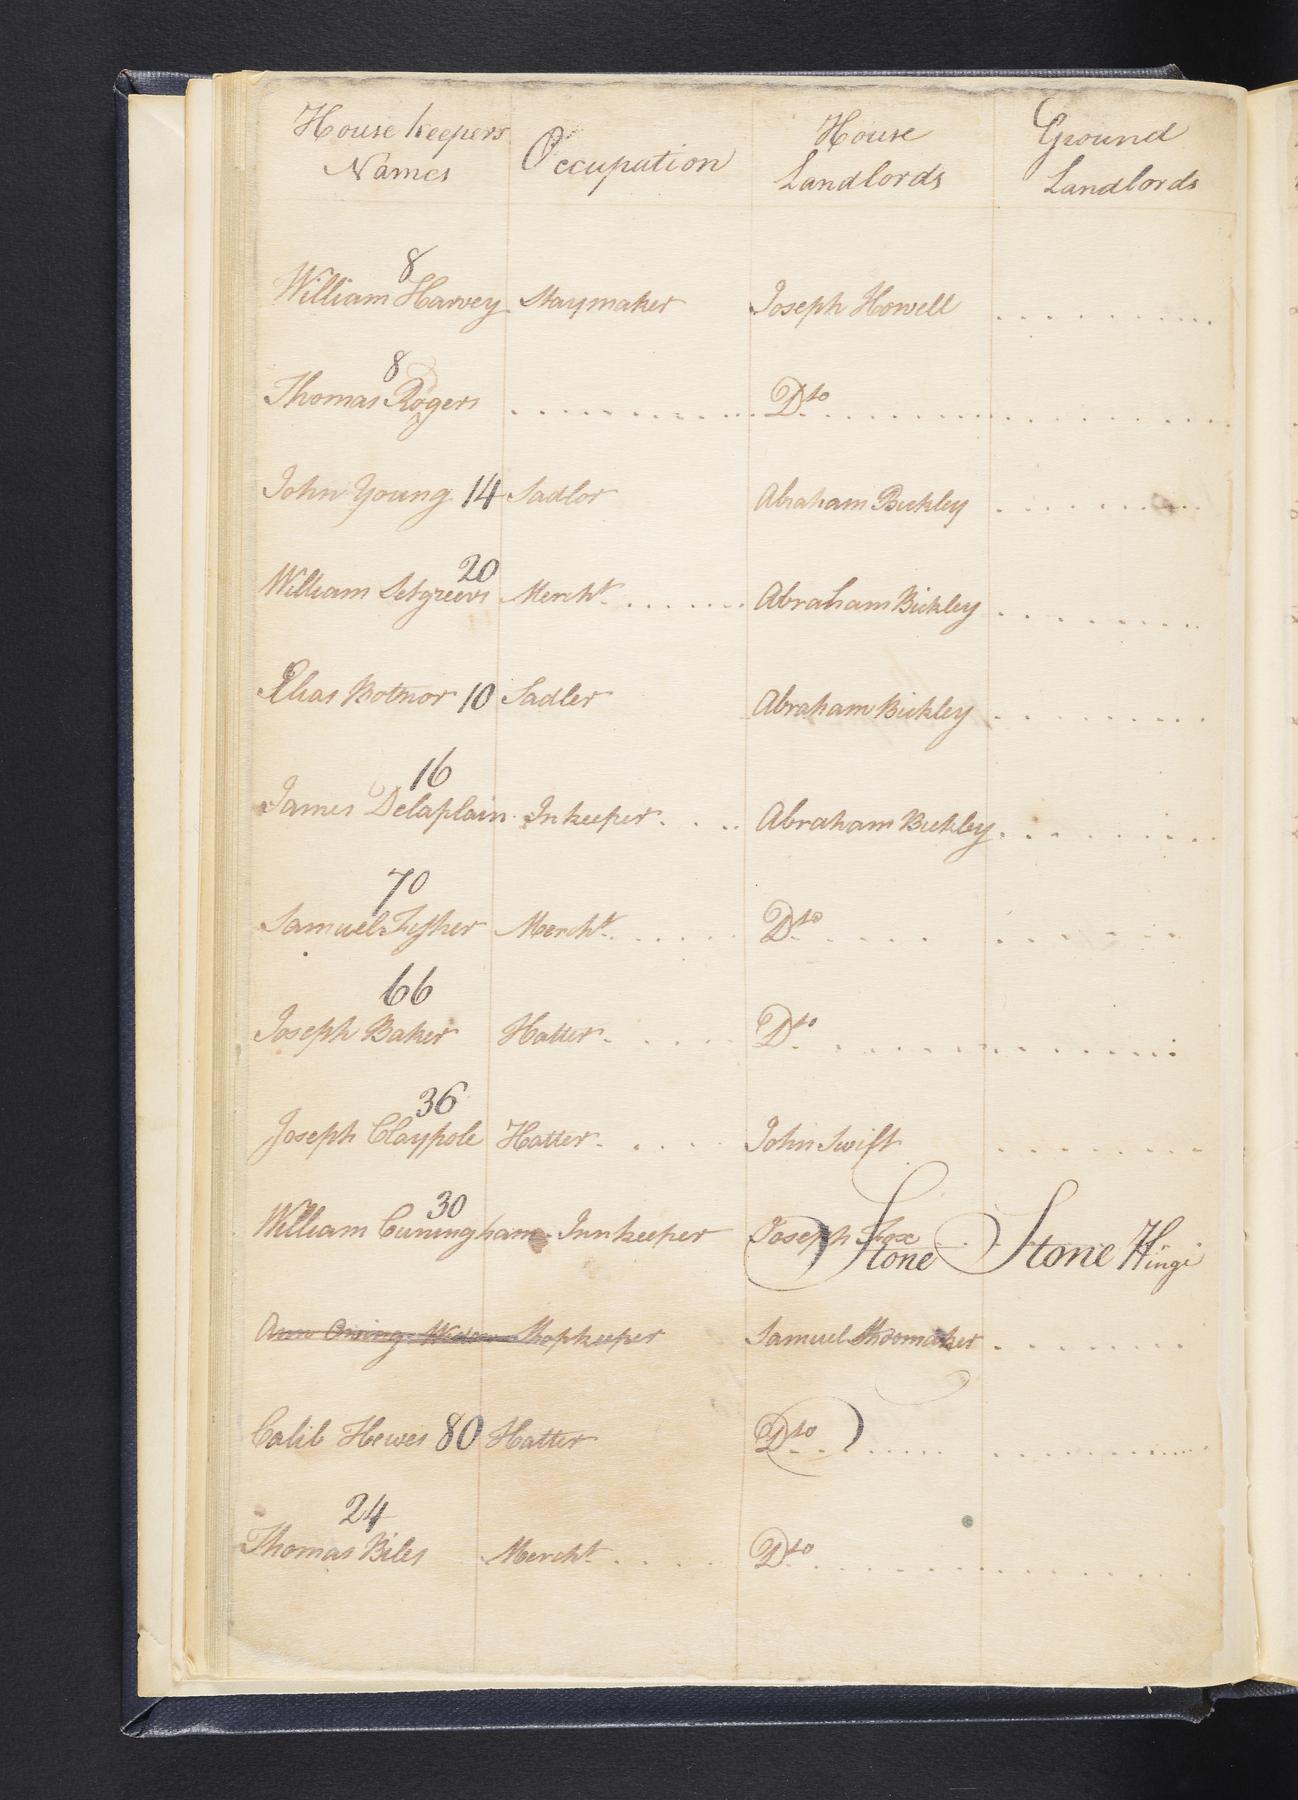 House keepers Names Occupation House Landlords Ground Landlords
8
William Harvey Staymaker Joseph Howell
8
Thomas Rogers Dto
John Young 14 Sadlor Abraham Bickley
20
William Setgreevs Mercht Abraham Bickley
Elias Botnor 10 Sadler Abraham Bickley
16
James Delaplain Inkeeper Abraham Bickley
70
Samuel Fisher Mercht Dto
66
Joseph Baker Hatter Dto
36
Joseph Claypole Hatter John Swift
30
William Cuningham Innkeeper Joseph Fox
Stone Stone Hingi
Ann Shopkeeper Samuel Shoomaker
Calib Hewes 80 Hatter Dto
24
Thomas Biles Mercht Dto